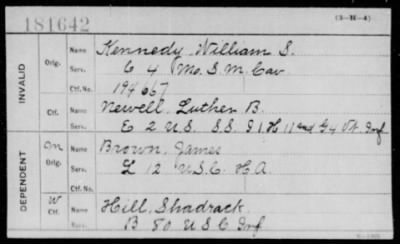 181642
(3-H-4)
INVALID
Orig.
Name Kennedy, William S.
Serv. C 4 Mo. S. M. Cav
Ctf. No. 194667
Ctf.
Name Newell, Luther B.
Serv. E 2 U.S. S.S. & H 11 and G 4 Vt. Inf
DEPENDENT
Orig.
Name Brown, James
Serv. L 12 U.S.C. H.A.
Ctf. No.
W
Ctf.
Name Hill, Shadrack
Serv. B 80 U S C Inf